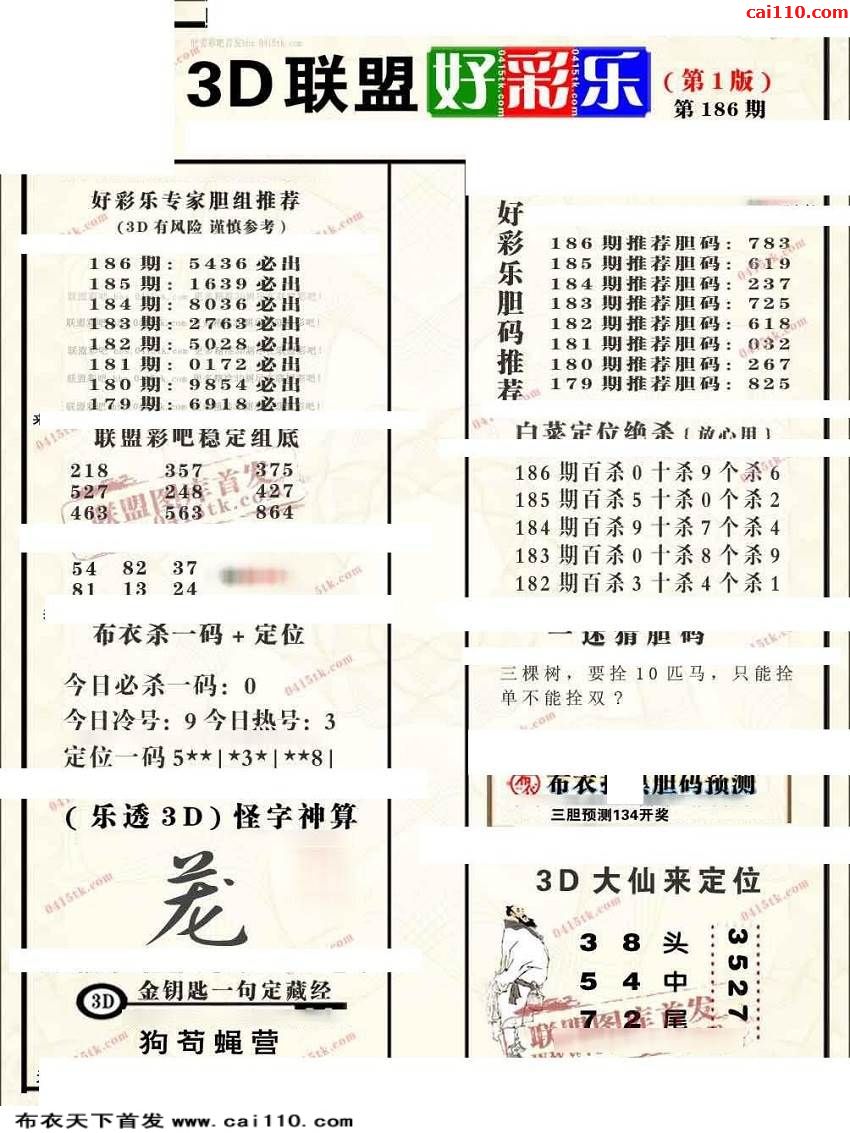 cai110.com
3D联盟好彩乐(第1版)
第186期
好彩乐专家胆组推荐
(3D有风险 谨慎参考)
186期: 5436必出
185期: 1639必出
184期: 8036必出
183期: 2763必出
182期: 5028必出
181期: 0172必出
180期: 9854必出
179期: 6918必出
联盟彩吧稳定组底
218 357 375
527 248 427
463 563 864
54 82 37
81 13 24
布衣杀一码+定位
今日必杀一码: 0
今日冷号: 9 今日热号: 3
定位一码 5**|*3*|**8|
(乐透3D)怪字神算
3D 金钥匙一句定藏经
狗苟蝇营
好彩乐胆码推荐
186期推荐胆码: 783
185期推荐胆码: 619
184期推荐胆码: 237
183期推荐胆码: 725
182期推荐胆码: 618
181期推荐胆码: 032
180期推荐胆码: 267
179期推荐胆码: 825
白菜定位绝杀{放心用}
186期百杀0十杀9个杀6
185期百杀5十杀0个杀2
184期百杀9十杀7个杀4
183期百杀0十杀8个杀9
182期百杀3十杀4个杀1
一迷猜胆码
三棵树，要拴10匹马，只能拴
单不能拴双？
布衣 胆码预测
三胆预测134开奖
3D大仙来定位
3 8 头
5 4 中
7 2 尾
3527
联盟图库首发
0415tk.com
布衣天下首发 www.cai110.com